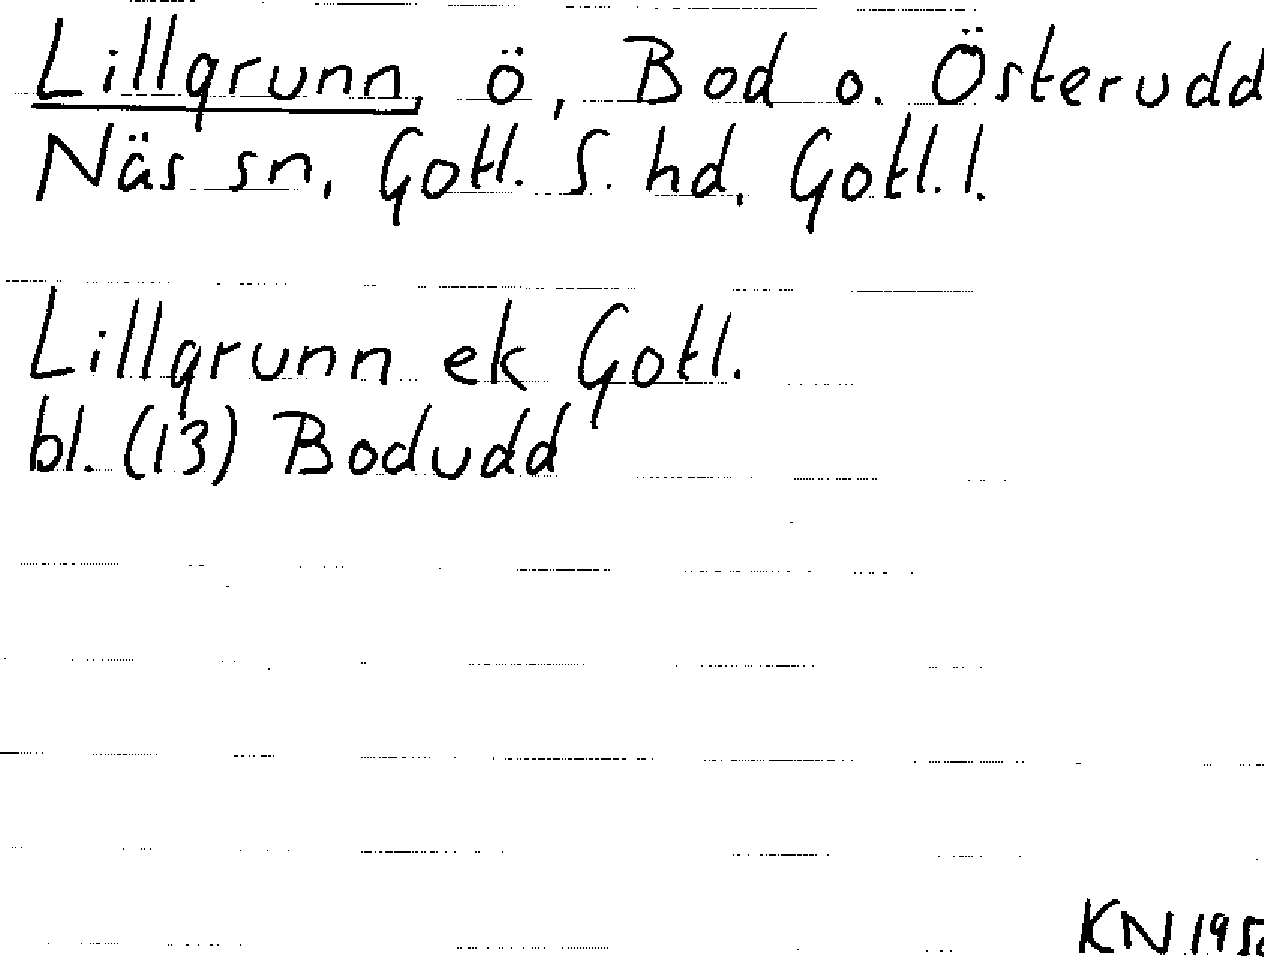 Lillgrunn, ö, Bod o. Österudd
Näs sn, Gotl. S. hd, Gotl. l.
Lillgrunn ek Gotl.
bl. (13) Bodudd
KN